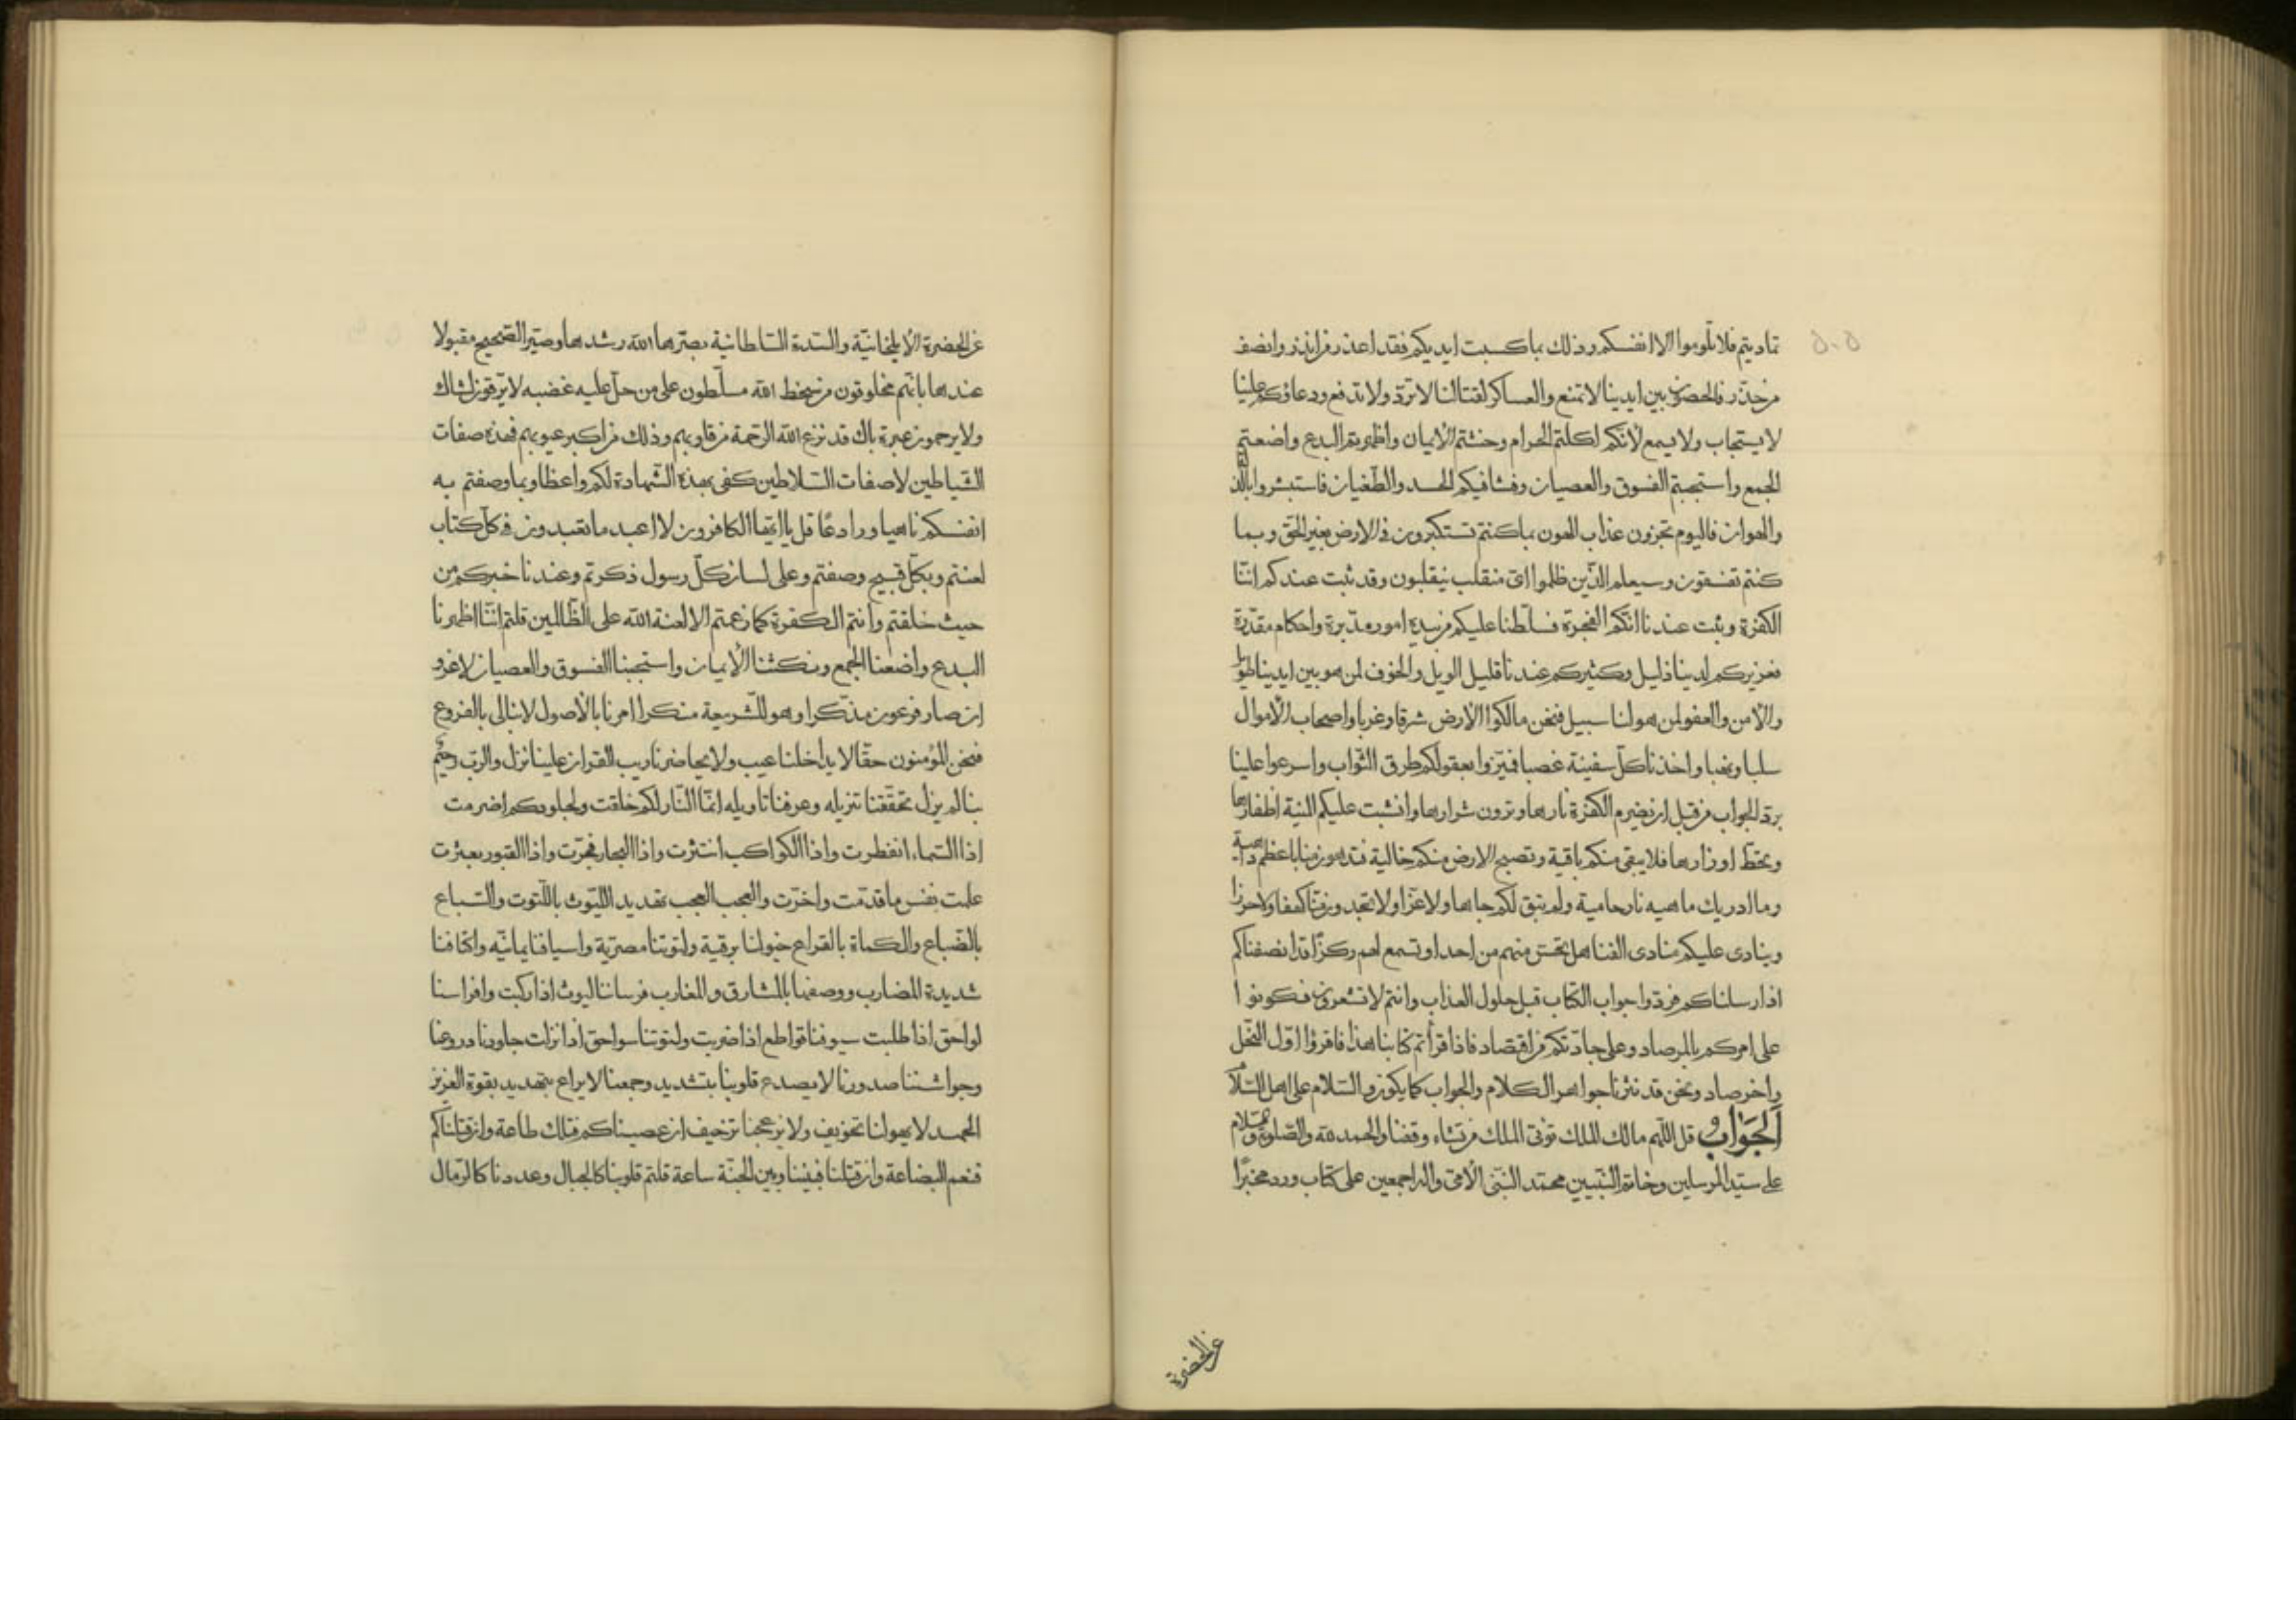 تماديتم فلا تلوموا الا انفسكم وذلك بما كسبت ايديكم فقد اعذر من انذر وانصف
من حذّر فالحصون بين ايدينا لا تمنع والعساكر لقتالنا لا تردّ ولا تدفع ودعاؤكم علينا
لا يستجاب ولا يسمع لانّكم اكلتم الحرام وخنثتم الايمان واظهرتم البدع واضعتم
الجمع واستحببتم الفسوق والعصيان وفشا فيكم الحسد والطّغيان فاستبشروا بالذّل
والهوان فاليوم تجزون عذاب الهون بما كنتم تستكبرون فى الارض بغير الحق وبما
كنتم تفسقون وسيعلم الّذين ظلموا اىّ منقلب ينقلبون وقد ثبت عندكم انّنا
الكفرة وثبت عندنا انّكم الفجرة فسلّطنا عليكم من بيده امور مدبّرة واحكام مقدّرة
فعزيزكم لدينا ذليل وكثيركم عندنا قليل الويل والخوف لمن هو بين ايدينا طويل
والامن والعفو لمن هو لنا سبيل فنحن مالكوا الارض شرقا وغربا واصحاب الاموال
سلبا ونهبا واخذنا كلّ سفينة غصبا فميّزوا بعقولكم طرق الثواب واسرعوا علينا
بردّ الجواب من قبل ان تضرم الكفرة نارها وترون شرارها وانشبت عليكم المنية اظفارها
وتحطّ اوزارها فلا يبقى منكم باقية وتصبح الارض منكم خالية فتدهون منا باعظم داهية
وما ادريك ماهيه نار حامية ولم تبق لكم جاها ولا عزّا ولا تجدون منّا كهفا ولا حرزا
وينادى عليكم منادى الفنا هل تحسّ منهم من احد او تسمع لهم ركزا قد انصفناكم
اذ ارسلناكم فردّوا جواب الكتاب قبل حلول العذاب وانتم لا تشعرون فكونوا
على امركم بالمرصاد وعلى جادّتكم من اقتصاد فاذا قرأتم كتابنا هذا فاقرؤا اوّل النحل
واخر صاد ونحن قد نثرنا جواهر الكلام والجواب كما يكون والسّلام على اهل السّلام
الجواب قل اللّهم مالك الملك تؤتى الملك من تشاء وقفنا والحمد لله والصّلوة والسّلام
على سيّد المرسلين وخاتم النّبيين محمّد النبى الامّى واله اجمعين على كتاب ورد مخبرا
عن الحضرة
عن الحضرة الايلخانيّة والسّدة السّلطانية بصّرها الله رشدها وصيّر الصّحيح مقبولا
عندها بانّهم مخلوقون من سخط الله مسلّطون على من حلّ عليه غضبه لا يرقون لشاك
ولا يرحمون عبرة باك قد نزع الله الرّحمة من قلوبهم وذلك من اكبر عيوبهم فهذه صفات
الشّياطين لا صفات السّلاطين كفى بهذه الشّهادة لكم واعظا وبما وصفتم به
انفسكم ناهيا ورادعا قل يا ايّها الكافرون لا اعبد ما تعبدون فى كلّ كتاب
لعنتم وبكلّ قبيح وصفتم وعلى لسان كلّ رسول ذكرتم وعندنا خبركم من
حيث خلقتم وانتم الكفرة كما زعمتم الا لعنة الله على الظّالمين قلتم انّنا اظهرنا
البدع واضعنا الجمع ونكثنا الايمان واستحببنا الفسوق والعصيان لا غرو
ان صار فرعون مذكّرا وهو للشّريعة منكرا امرنا بالاصول لا نبالى بالفروع
فنحن المؤمنون حقّا لا يداخلنا عيب ولا يخاصرنا ريب القران علينا نزل والربّ رحيم
بنا لم يزل تحقّقنا تنزيله وعرفنا تاويله انّما النّار لكم خلقت ولجلودكم اضرمت
اذا السّماء انفطرت واذا الكواكب انتثرت واذا البحار فجّرت واذا القبور بعثرت
علمت نفس ما قدّمت واخّرت والعجب العجب تهديد الليّوث باللّتوت والسّباع
بالضّباع والكماة بالقراع خيولنا برقية ولتوتنا مصريّة واسيافنا يمانيّه واكتافنا
شديدة المضارب ووصفها بالمشارق والمغارب فرساننا ليوث اذا ركبت وافراسنا
لواحق اذا طلبت سيوفنا قواطع اذا ضربت ولتوتنا سواحق اذا نزلت جلودنا دروعنا
وجواشننا صدورنا لا يصدع قلوبنا بتشديد وجمعنا لا يراع بتهديد بقوة العزيز
الحميد لا يهولنا تخويف ولا يزعجنا ترخيف ان عصيناكم فتلك طاعة وان قتلناكم
فنعم البضاعة وان قتلنا فبيننا وبين الجنّة ساعة قلتم قلوبنا كالجبال وعددنا كالرّمال